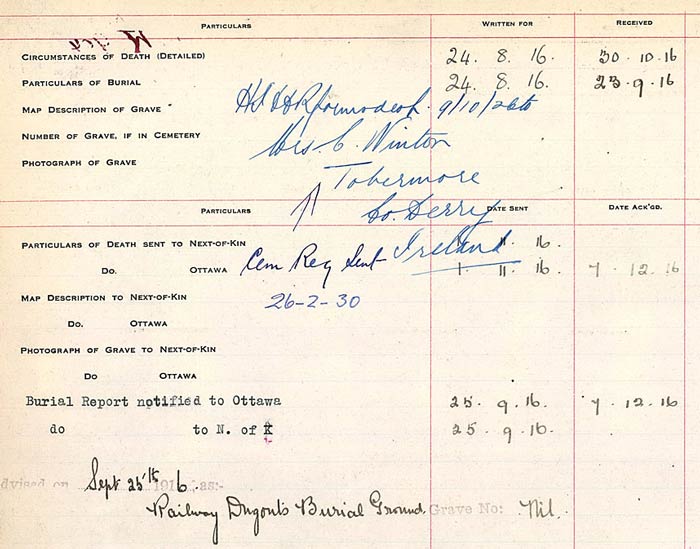 PARTICULARS WRITTEN FOR RECEIVED
CIRCUMSTANCES OF DEATH (DETAILED) 24. 8. 16. 30. 10. 16
PARTICULARS OF BURIAL 24. 8. 16. 23. 9. 16
MAP DESCRIPTION OF GRAVE 9/10/26 to
NUMBER OF GRAVE, IF IN CEMETERY Mrs. C. Winton
PHOTOGRAPH OF GRAVE Tobermore
Co. Derry
PARTICULARS DATE SENT DATE ACK'GD.
Ireland
PARTICULARS OF DEATH SENT TO NEXT-OF-KIN 11. 16.
DO. OTTAWA Cem Reg Sent 1. 11. 16. 7. 12. 16
MAP DESCRIPTION TO NEXT-OF-KIN 26-2-30
DO. OTTAWA
PHOTOGRAPH OF GRAVE TO NEXT-OF-KIN
DO OTTAWA
Burial Report notified to Ottawa 25. 9. 16. 7. 12. 16
do to N. of K 25. 9. 16.
Advised on Sept 25th 1916. as:-
Railway Dugouts Burial Ground. Grave No: Nil.